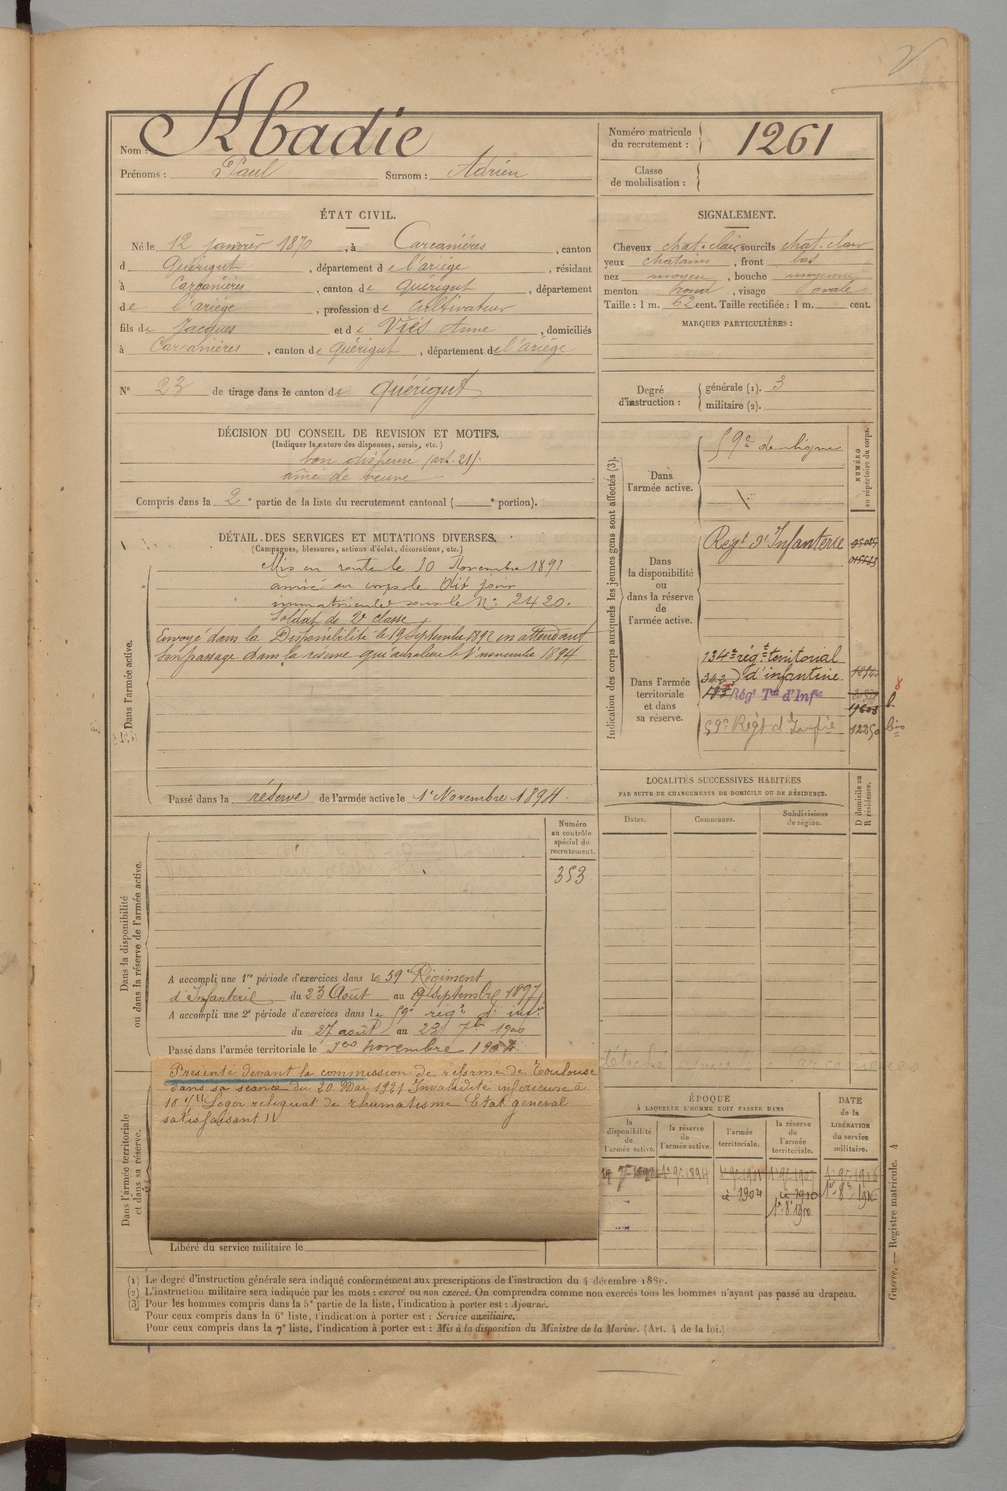 Nom : Abadie
Prénoms : Paul Surnom : Adrien
Numéro matricule
du recrutement : 1261
Classe
de mobilisation :
ÉTAT CIVIL.
Né le 12 janvier 1870, à Carcanières, canton
d Quérigut, département de l'ariége, résidant
à Carcanières, canton de Quérigut, département
de l'ariége, profession de Cultivateur
fils de Jacques et de Viés Anne, domiciliés
à Carcanières, canton de Quérigut, département de l'ariége
N° 23 de tirage dans le canton de Quérigut
SIGNALEMENT.
Cheveux chat. clair sourcils chat. clair
yeux chatains, front bas
nez moyen, bouche moyenne
menton rond, visage ovale
Taille : 1 m. 62 cent. Taille rectifiée : 1 m. cent.
MARQUES PARTICULIÈRES :
Degré
d'instruction :
générale (1). 3
militaire (2).
DÉCISION DU CONSEIL DE REVISION ET MOTIFS.
(Indiquer la nature des dispenses, sursis, etc.)
bon dispensé (art. 21)
ainé de veuve
Compris dans la 2e partie de la liste du recrutement cantonal ( e portion).
DÉTAIL DES SERVICES ET MUTATIONS DIVERSES.
(Campagnes, blessures, actions d'éclat, décorations, etc.)
Dans l'armée active.
Mis en route le 10 Novembre 1891
arrivé au corps le dit jour
immatriculé sous le N° 2420.
Soldat de 2e classe
Envoyé dans la Disponibilité le 19 Septembre 1892 en attendant
son passage dans la réserve qui aura lieu le 1er novembre 1894
Passé dans la réserve de l'armée active le 1er Novembre 1894.
Indication des corps auxquels les jeunes gens sont affectés (3).
NUMÉRO
au répertoire du corps.
Dans
l'armée active.
59e de ligne
Dans
la disponibilité
ou
dans la réserve
de
l'armée active.
Regt d'Infanterie
Dans l'armée
territoriale
et dans
sa réserve.
134e régt territorial
d'infanterie
Régt Tal d'Infie
59e Régt d'Infie 12250 bis
LOCALITÉS SUCCESSIVES HABITÉES
PAR SUITE DE CHANGEMENTS DE DOMICILE OU DE RÉSIDENCE.
Dates.
Communes.
Subdivisions
de région.
D domicile ou
R résidence.
Dans la disponibilité
ou dans la réserve de l'armée active.
Numéro
au contrôle
spécial du
recrutement.
353
A accompli une 1re période d'exercices dans le 59e Régiment
d'Infanterie du 23 Août au 19 Septembre 1897
A accompli une 2e période d'exercices dans le 59e régt d'infie
du 27 août au 23 7bre 1900
Passé dans l'armée territoriale le 1er novembre 1904
Dans l'armée territoriale
et dans sa réserve.
Présenté devant la commission de réforme de Toulouse
dans sa séance du 20 Mai 1921 Invalidité inférieure à
10 % Léger reliquat de rhumatisme Etat général
satisfaisant
Libéré du service militaire le
ÉPOQUE
À LAQUELLE L'HOMME DOIT PASSER DANS
la
disponibilité
de
l'armée active.
la réserve
de
l'armée active.
l'armée
territoriale.
la réserve
de
l'armée
territoriale.
DATE
de la
LIBÉRATION
du service
militaire.
1er 9bre 1894
1er 9bre 1916
à 1904
à 1910
1er 8bre 1910
Guerre. — Registre matricule. 4
(1) Le degré d'instruction générale sera indiqué conformément aux prescriptions de l'instruction du 4 décembre 1889.
(2) L'instruction militaire sera indiquée par les mots : exercé ou non exercé. On comprendra comme non exercés tous les hommes n'ayant pas passé au drapeau.
(3) Pour les hommes compris dans la 5e partie de la liste, l'indication à porter est : Ajourné.
Pour ceux compris dans la 6e liste, l'indication à porter est : Service auxiliaire.
Pour ceux compris dans la 7e liste, l'indication à porter est : Mis à la disposition du Ministre de la Marine. (Art. 4 de la loi.)